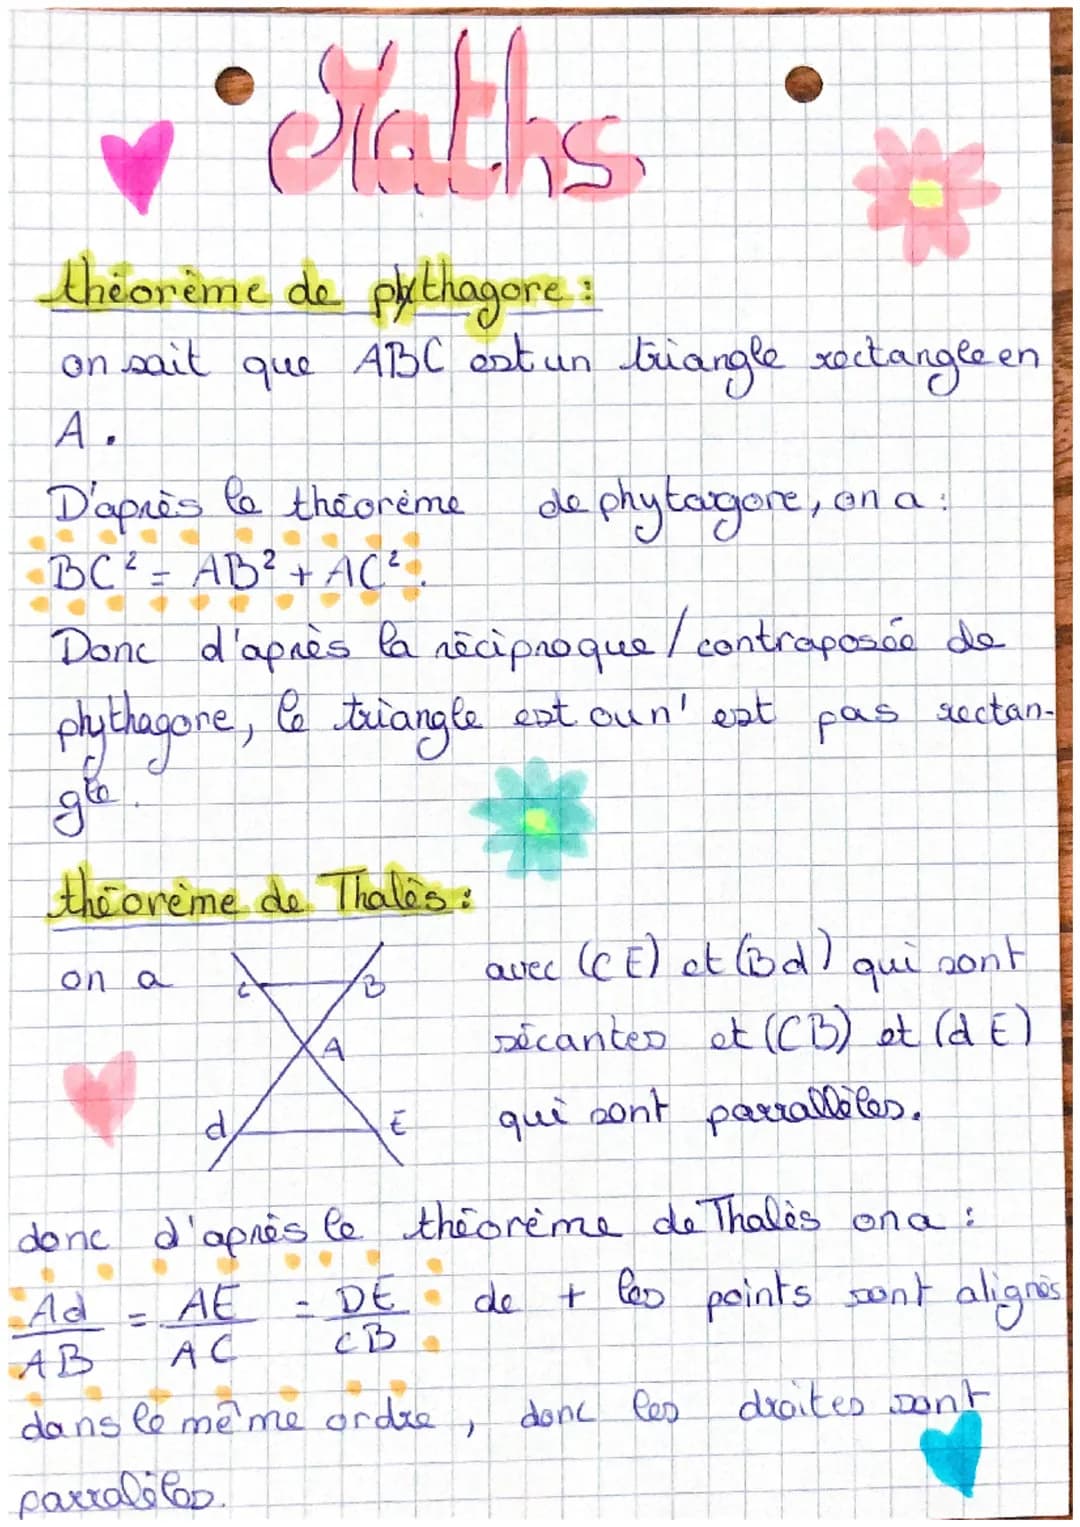 Maths
théorème de pythagore :
on sait que ABC est un triangle rectangle en
A.
D'après le théorème de phytagore, on a :
BC² = AB² + AC².
Donc d'après la réciproque / contraposée de
phythagore, le triangle est ou n' est pas rectan-
gle.
théorème de Thalès :
on a
C B
A
d E
avec (CE) et (Bd) qui sont
sécantes et (CB) et (dE)
qui sont parrallèles.
donc d'après le théorème de Thalès on a :
Ad/AB = AE/AC = DE/CB de + les points sont alignés
dans le même ordre, donc les droites sont
parralèles.